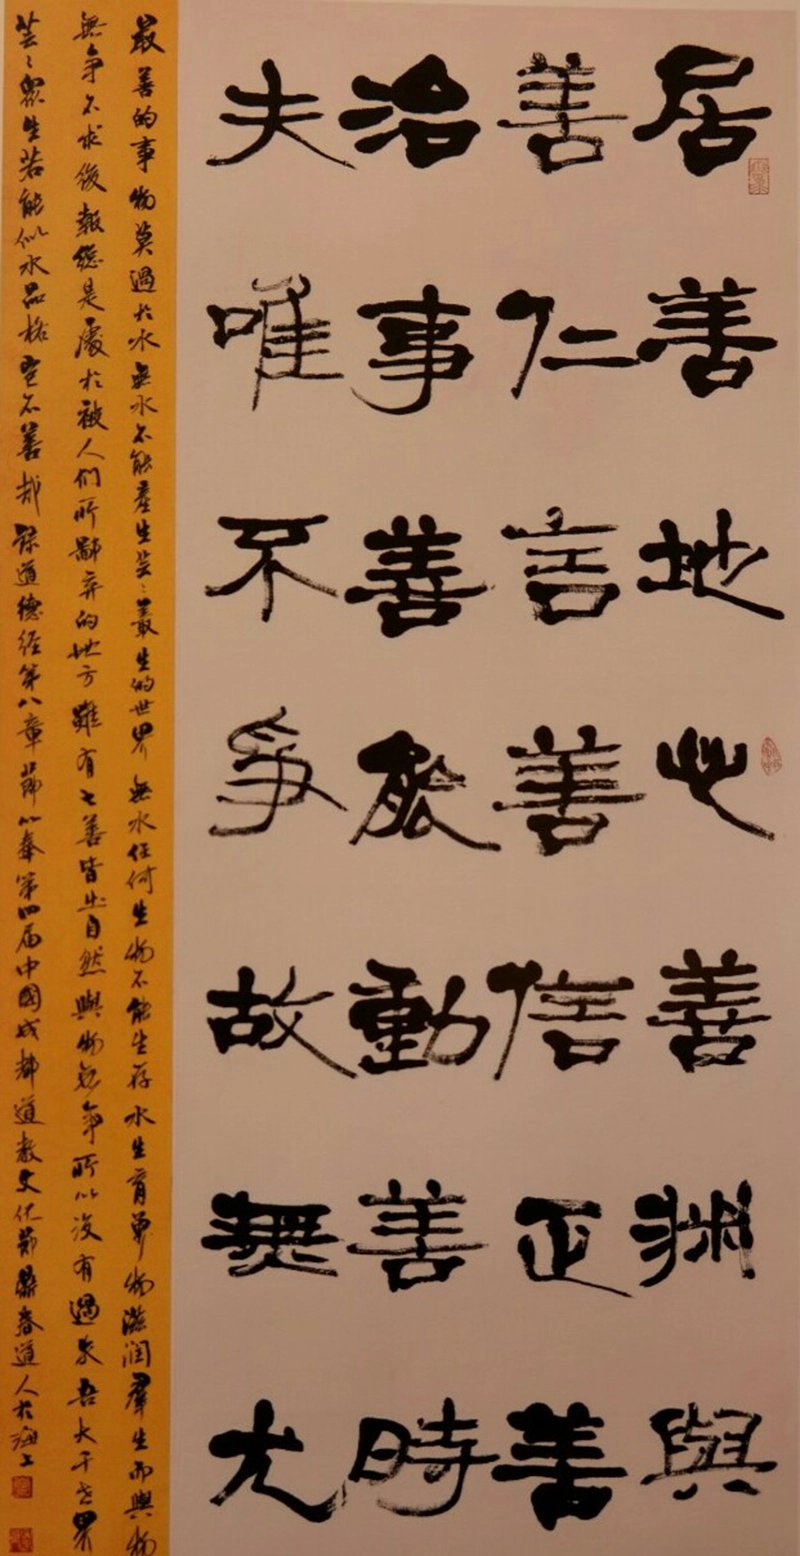 居善地心善渊與
善仁言善信正善
治事善能動善時
夫唯不争故無尤
最善的事物莫過於水無水不能產生芸芸叢生的世界無水任何生物不能生存水生育萬物滋润羣生而與物
無争不求後報總是處於被人们所鄙弃的地方雖有七善皆出自然與物無争所以没有過失吾大千世界
芸芸眾生若能似水品格豈不善哉 錄道德經第八章節以奉第四届中國成都道教文化節鼎春道人於海上